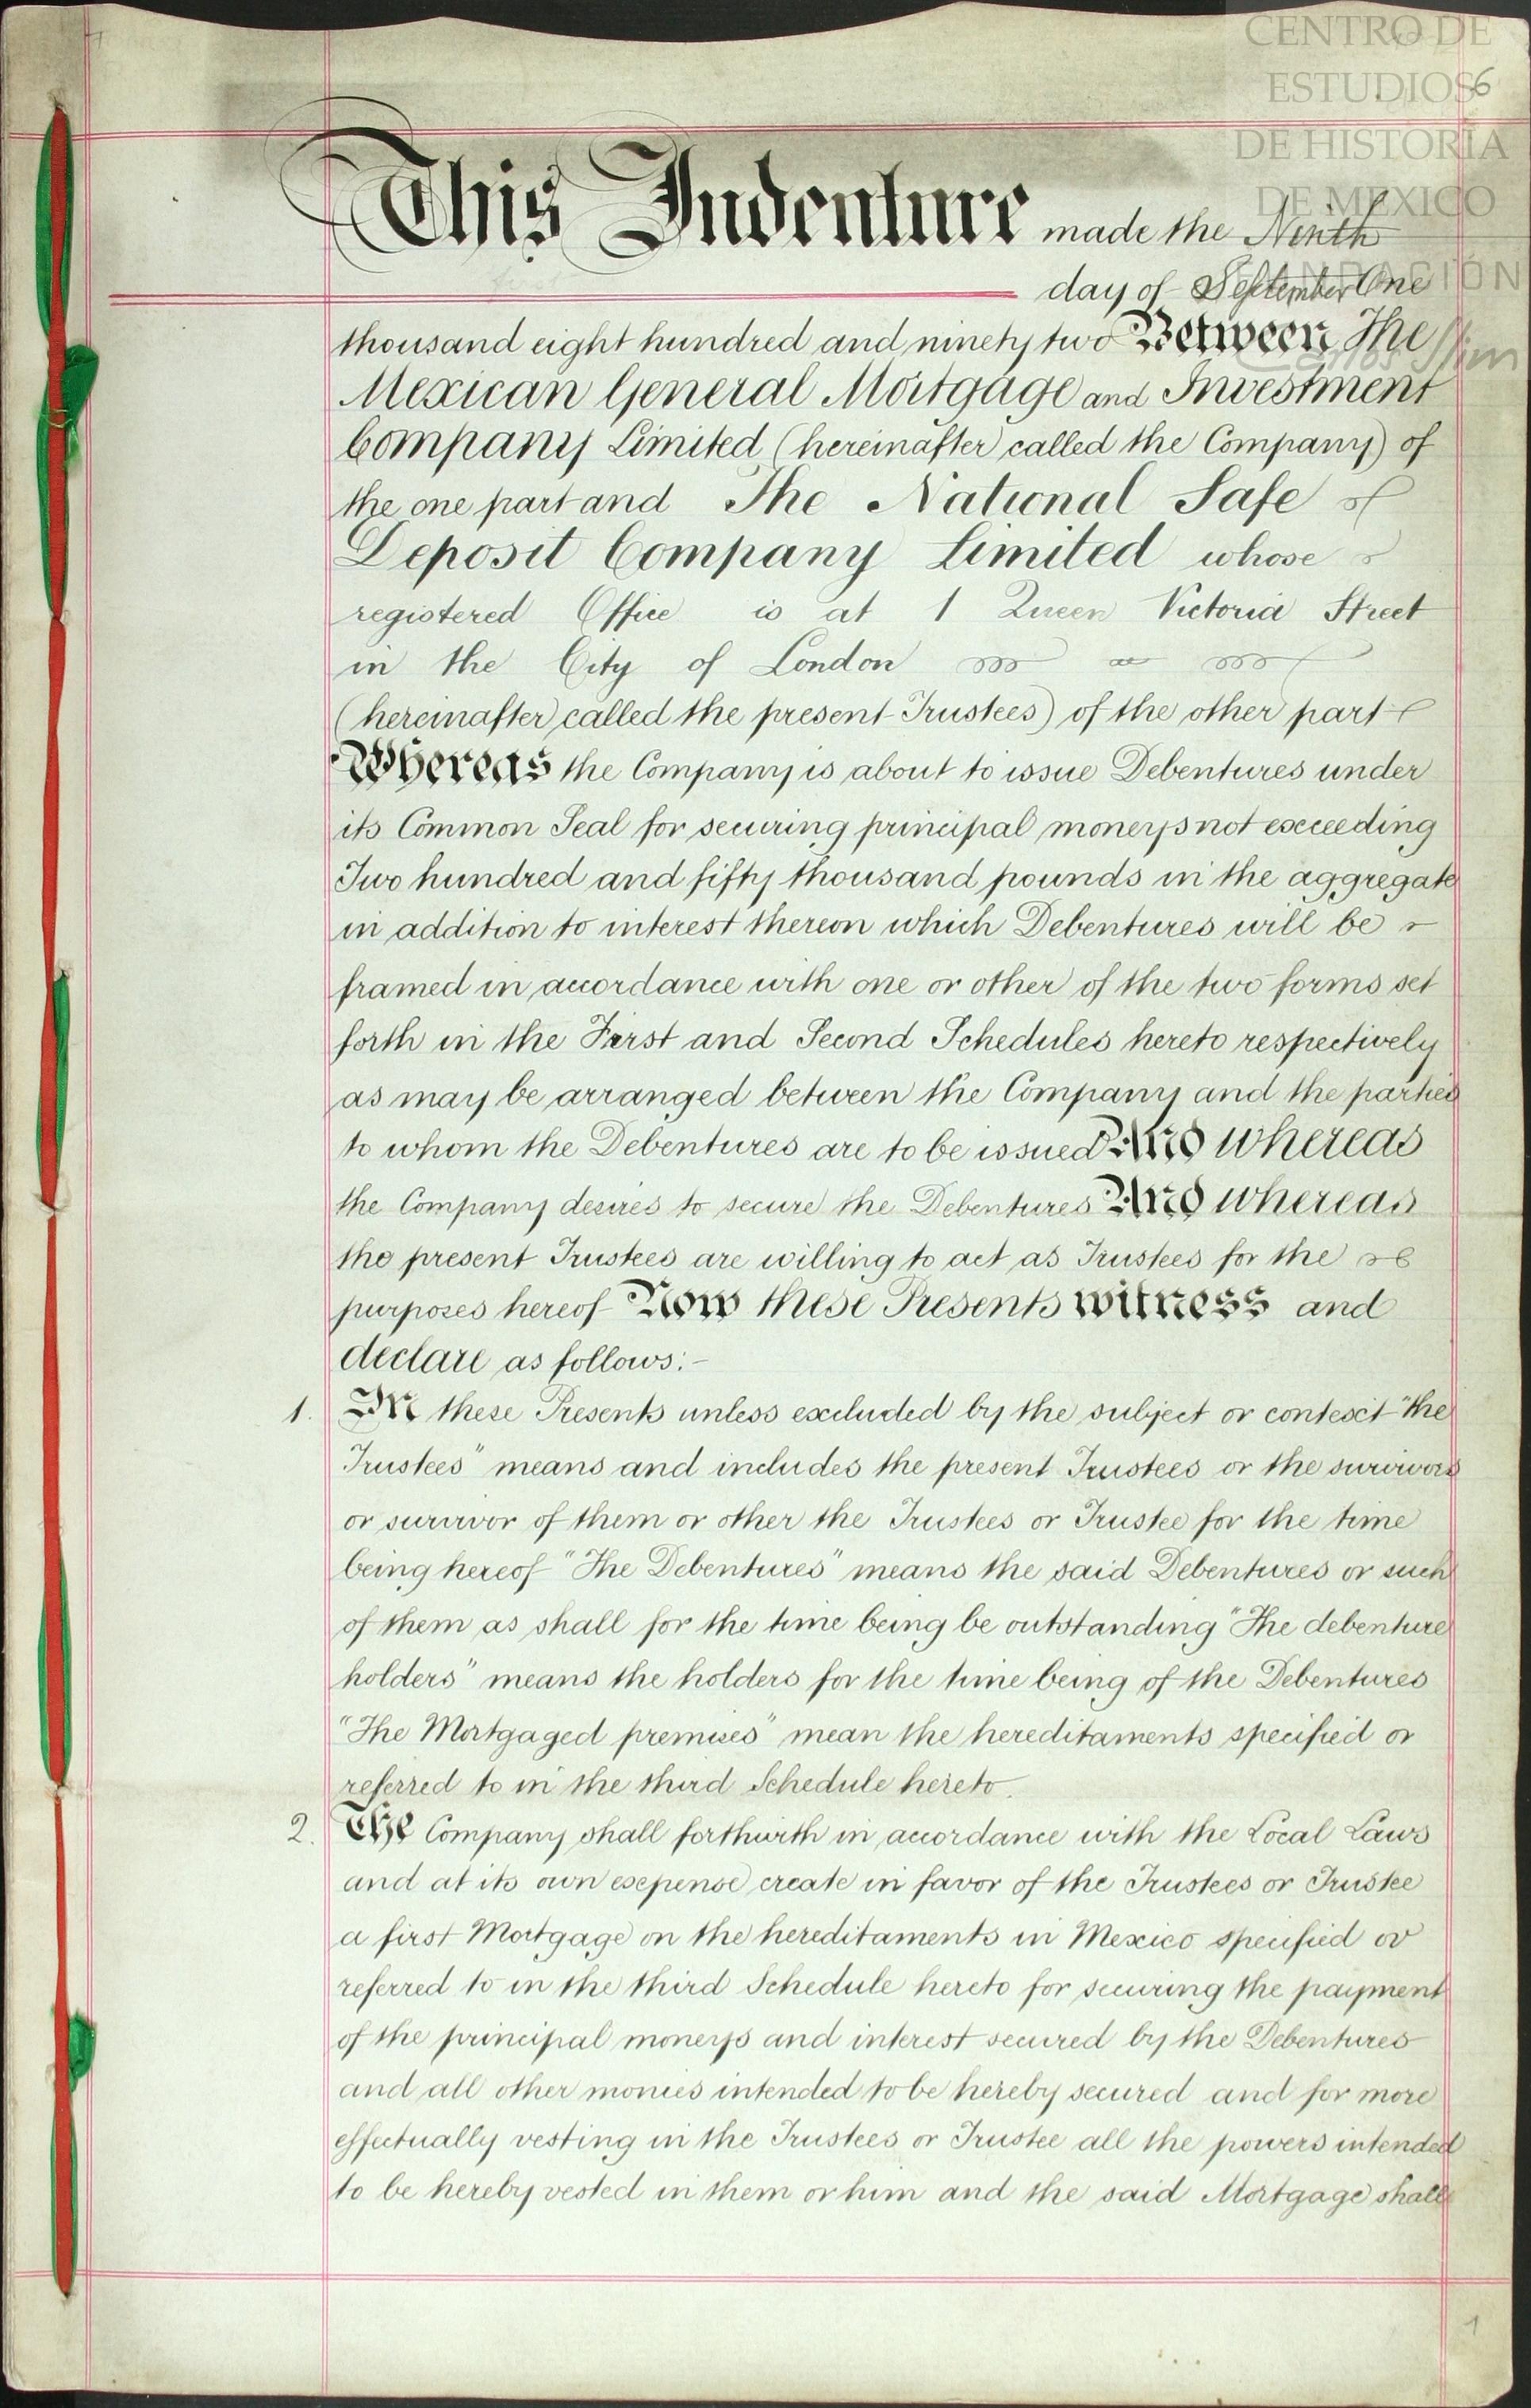 CENTRO DE
ESTUDIOS
6
DE HISTORIA
DE MEXICO
FUNDACIÓN
Carlos Slim
This Indenture made the Ninth
day of September One
thousand eight hundred and ninety two Between The
Mexican General Mortgage and Investment
Company Limited (hereinafter called the Company) of
the one part and The National Safe
Deposit Company Limited whose
registered Office is at 1 Queen Victoria Street
in the City of London
(hereinafter called the present Trustees) of the other part
Whereas the Company is about to issue Debentures under
its Common Seal for securing principal moneys not exceeding
Two hundred and fifty thousand pounds in the aggregate
in addition to interest thereon which Debentures will be
framed in accordance with one or other of the two forms set
forth in the First and Second Schedules hereto respectively
as may be arranged between the Company and the parties
to whom the Debentures are to be issued And whereas
the Company desires to secure the Debentures And whereas
the present Trustees are willing to act as Trustees for the
purposes hereof Now these Presents witness and
declare as follows:-
1. In these Presents unless excluded by the subject or context "the
Trustees" means and includes the present Trustees or the survivors
or survivor of them or other the Trustees or Trustee for the time
being hereof "The Debentures" means the said Debentures or such
of them as shall for the time being be outstanding "The debenture
holders" means the holders for the time being of the Debentures
"The Mortgaged premises" mean the hereditaments specified or
referred to in the third Schedule hereto.
2. The Company shall forthwith in accordance with the Local Laws
and at its own expense create in favor of the Trustees or Trustee
a first Mortgage on the hereditaments in Mexico specified or
referred to in the third Schedule hereto for securing the payment
of the principal moneys and interest secured by the Debentures
and all other monies intended to be hereby secured and for more
effectually vesting in the Trustees or Trustee all the powers intended
to be hereby vested in them or him and the said Mortgage shall
1